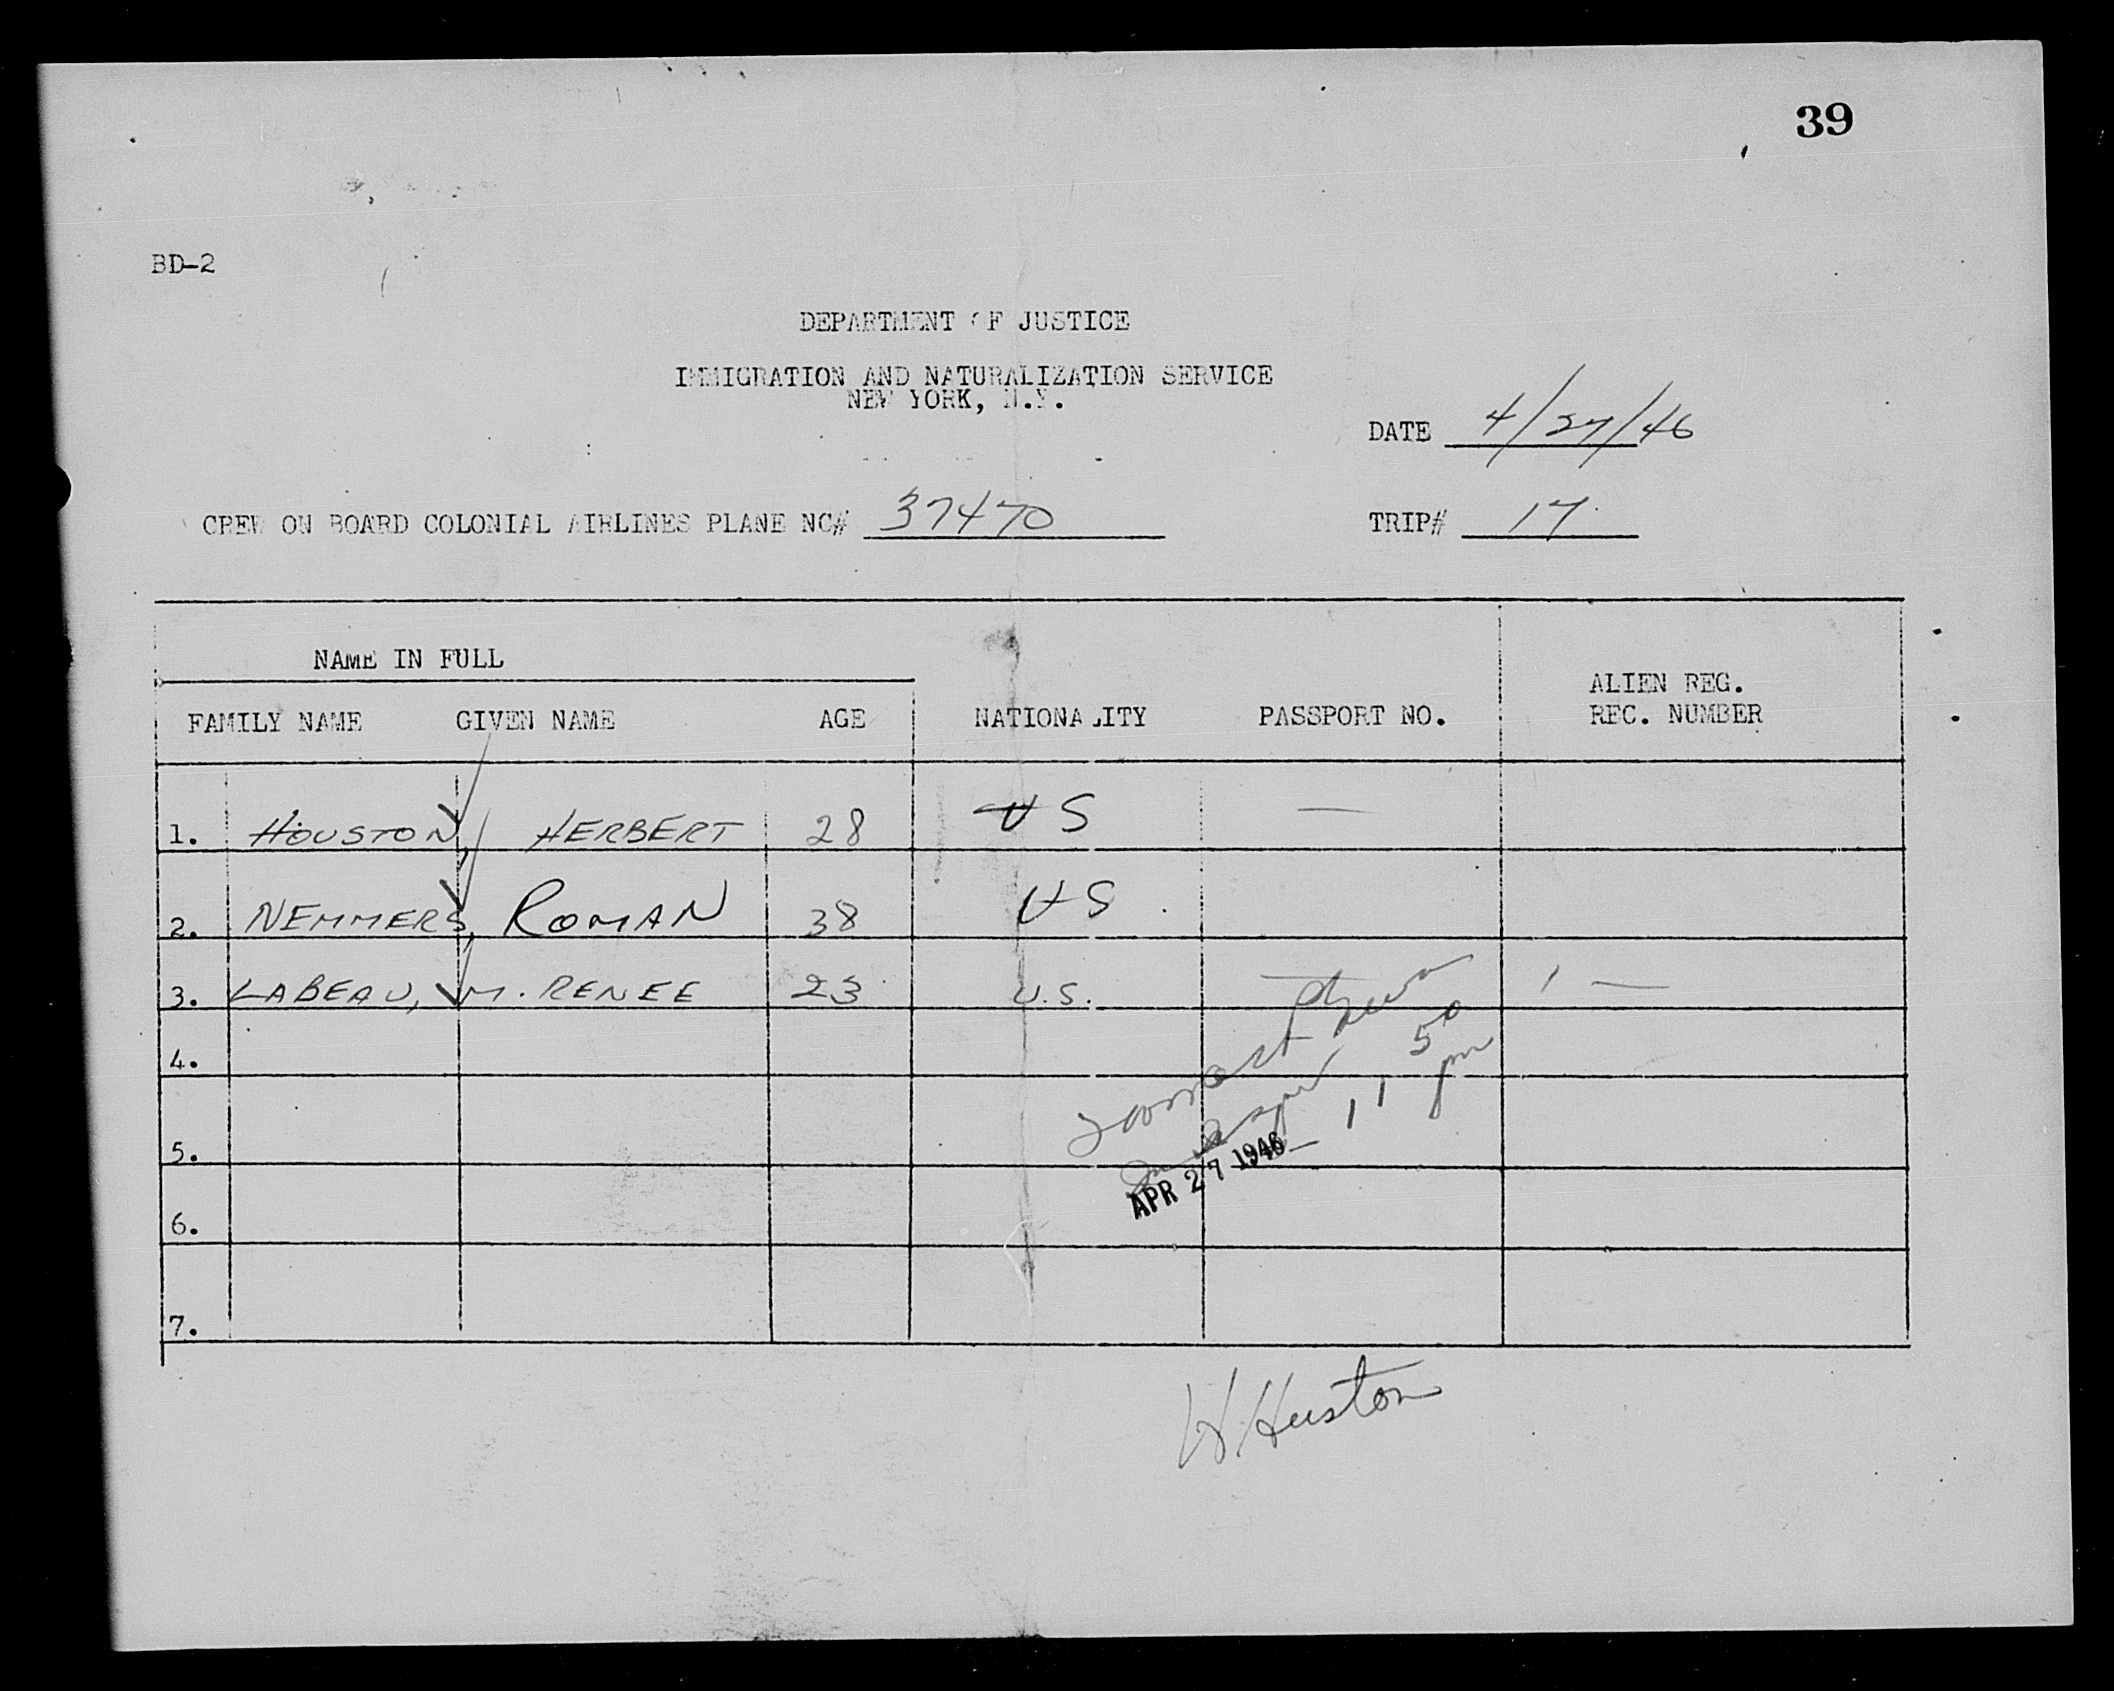 39
BD-2
DEPARTMENT OF JUSTICE
IMMIGRATION AND NATURALIZATION SERVICE
NEW YORK, N.Y.
DATE 4/27/46
CREW ON BOARD COLONIAL AIRLINES PLANE NC# 37470 TRIP# 17
NAME IN FULL
FAMILY NAME GIVEN NAME AGE NATIONALITY PASSPORT NO. ALIEN REG. REC. NUMBER
1. HOUSTON, HERBERT 28 US —
2. NEMMERS, ROMAN 38 US
3. LABEAU, M. RENEE 23 U.S. — —
4.
5.
6.
7.
11 50 pm
APR 27 1946
H. Huston